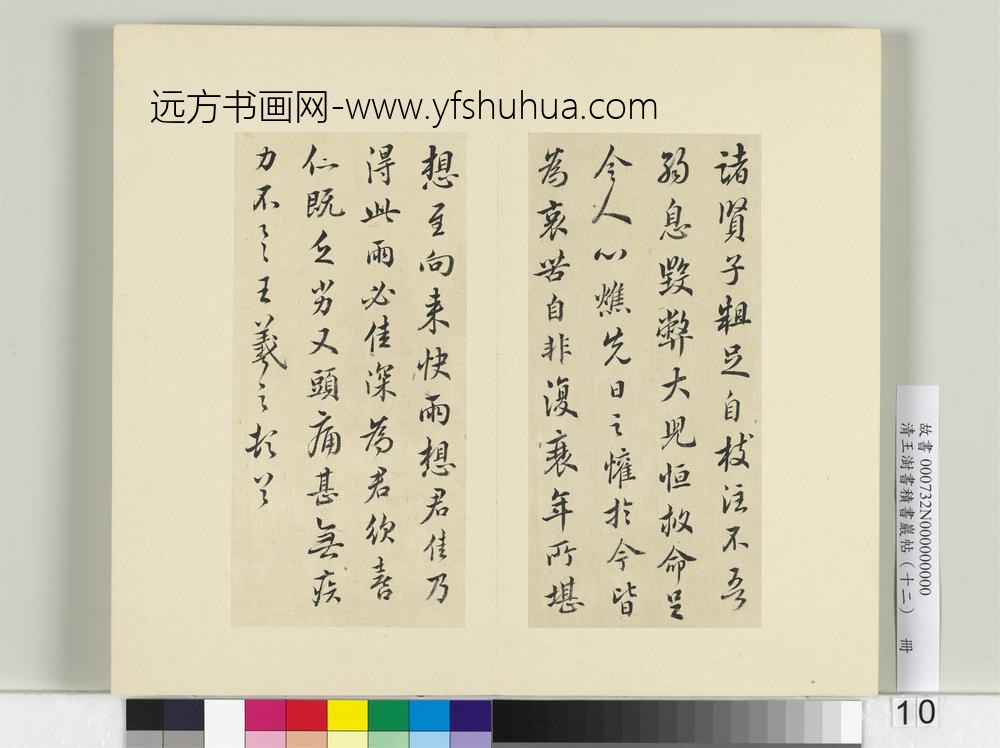 远方书画网-www.yfshuhua.com
諸賢子粗足自枝注不吾
弱息毀弊大児恒救命足
令人心燋先日之懽於今皆
為哀苦自非復衰年所堪
想至向来快雨想君佳乃
得此雨必佳深為君欣喜
仁既乏劣又頭痛甚無疾
力不一一王羲之頓首
故書 000732N000000000
清王澍書積書巖帖(十二) 冊
10